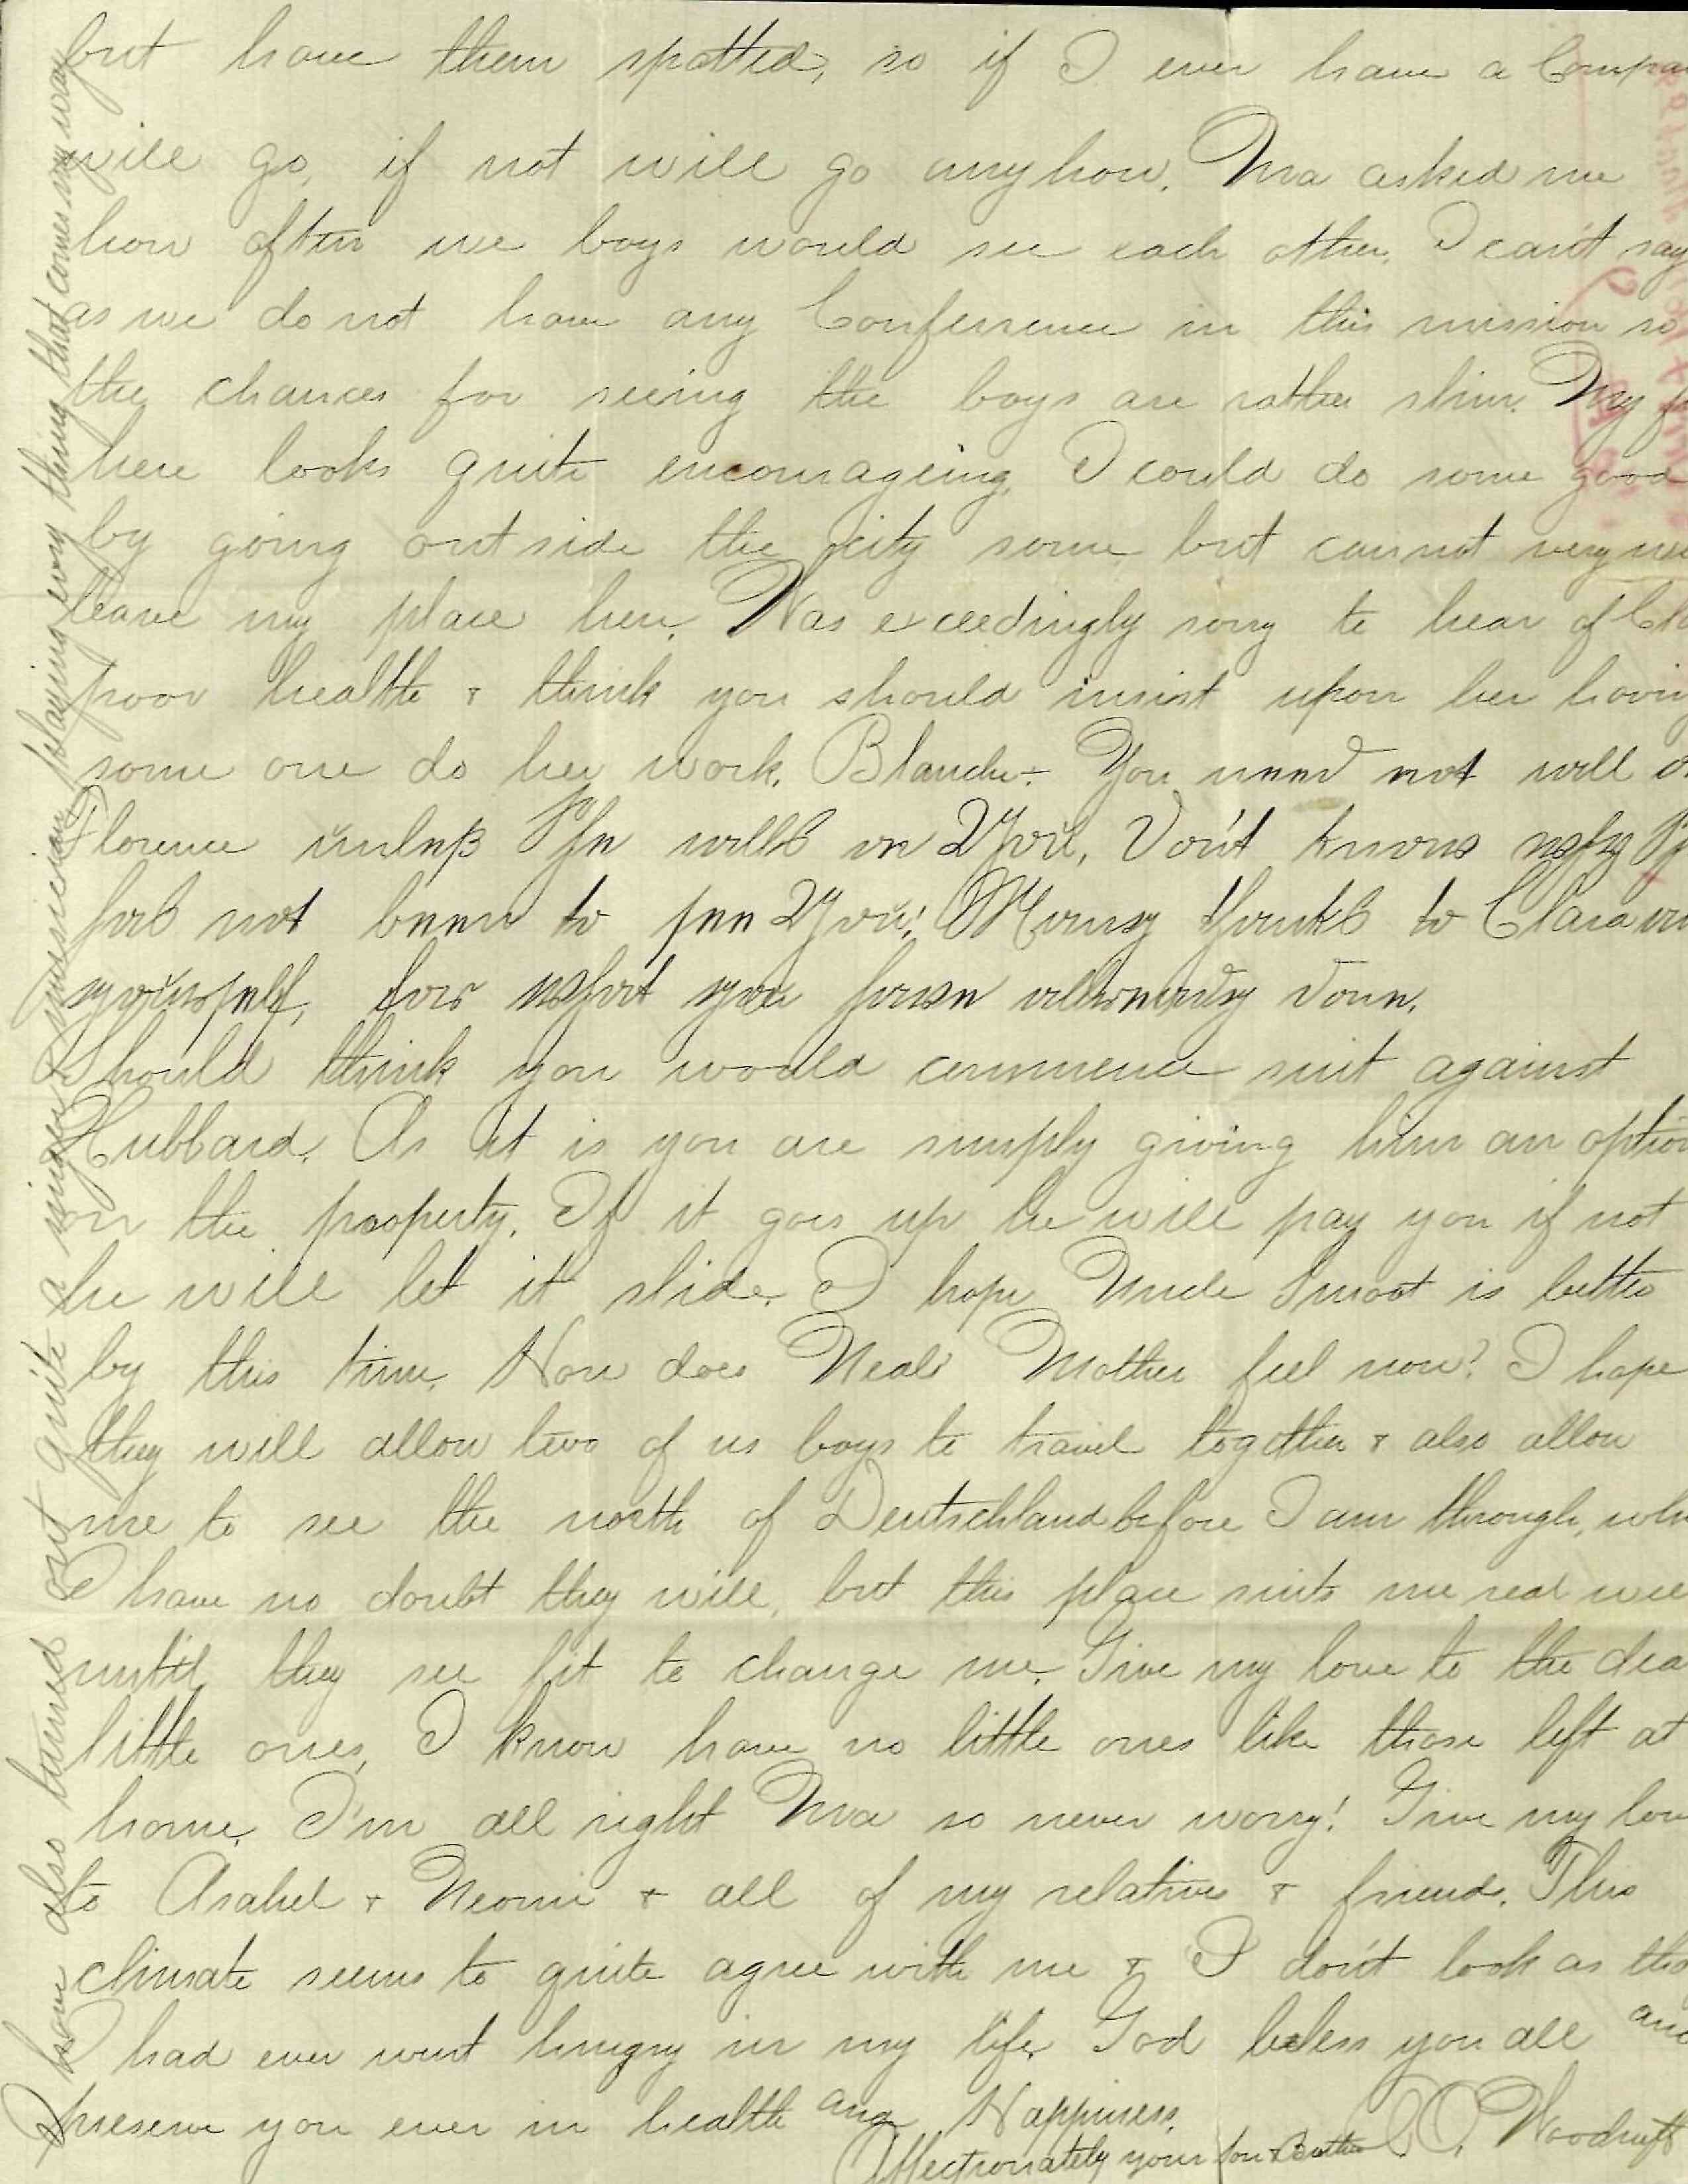 but have them spotted, so if I ever have a Compa
will go, if not will go anyhow. Ma asked me
how often we boys would see each other, I can't say
as we do not have any Conference in this mission so
the chances for seeing the boys are rather slim. My
here looks quite encourageing, I could do some good
by going outside the city some but cannot very we
leave my place here. Was exceedingly sorry to hear of Cl
poor health & think you should insist upon her having
some one do her work. Blanche - You need not call on
Florence unless She calls on You, Don't know why S
has not been to see You! Many thanks to Clara an
yourself, for what you have allready done.
Should think you would commence suit against
Hubbard. As it is you are simply giving him an option
on the property. If it goes up he will pay you if not
he will let it slide. I hope Uncle Smoot is better
by this time. How does Neals Mother feel now? I hope
they will allow two of us boys to travel together & also allow
me to see the north of Deutschland before I am through, wh
I have no doubt they will, but this place suits me real well
until they see fit to change me. Give my love to the dea
little ones, I know have no little ones like those left at
home. I'm all right Ma so never worry! Give my love
to Asahel & Neomi & all of my relatives & friends. This
climate seems to quite agree with me & I don't look as tho
I had ever went hungry in my life. God bless you all and
preserve you ever in health and Happiness.
Affectionately your son & Brother O. Woodruff
I have also turned out quite a singer & mussician playing every thing that comes my way